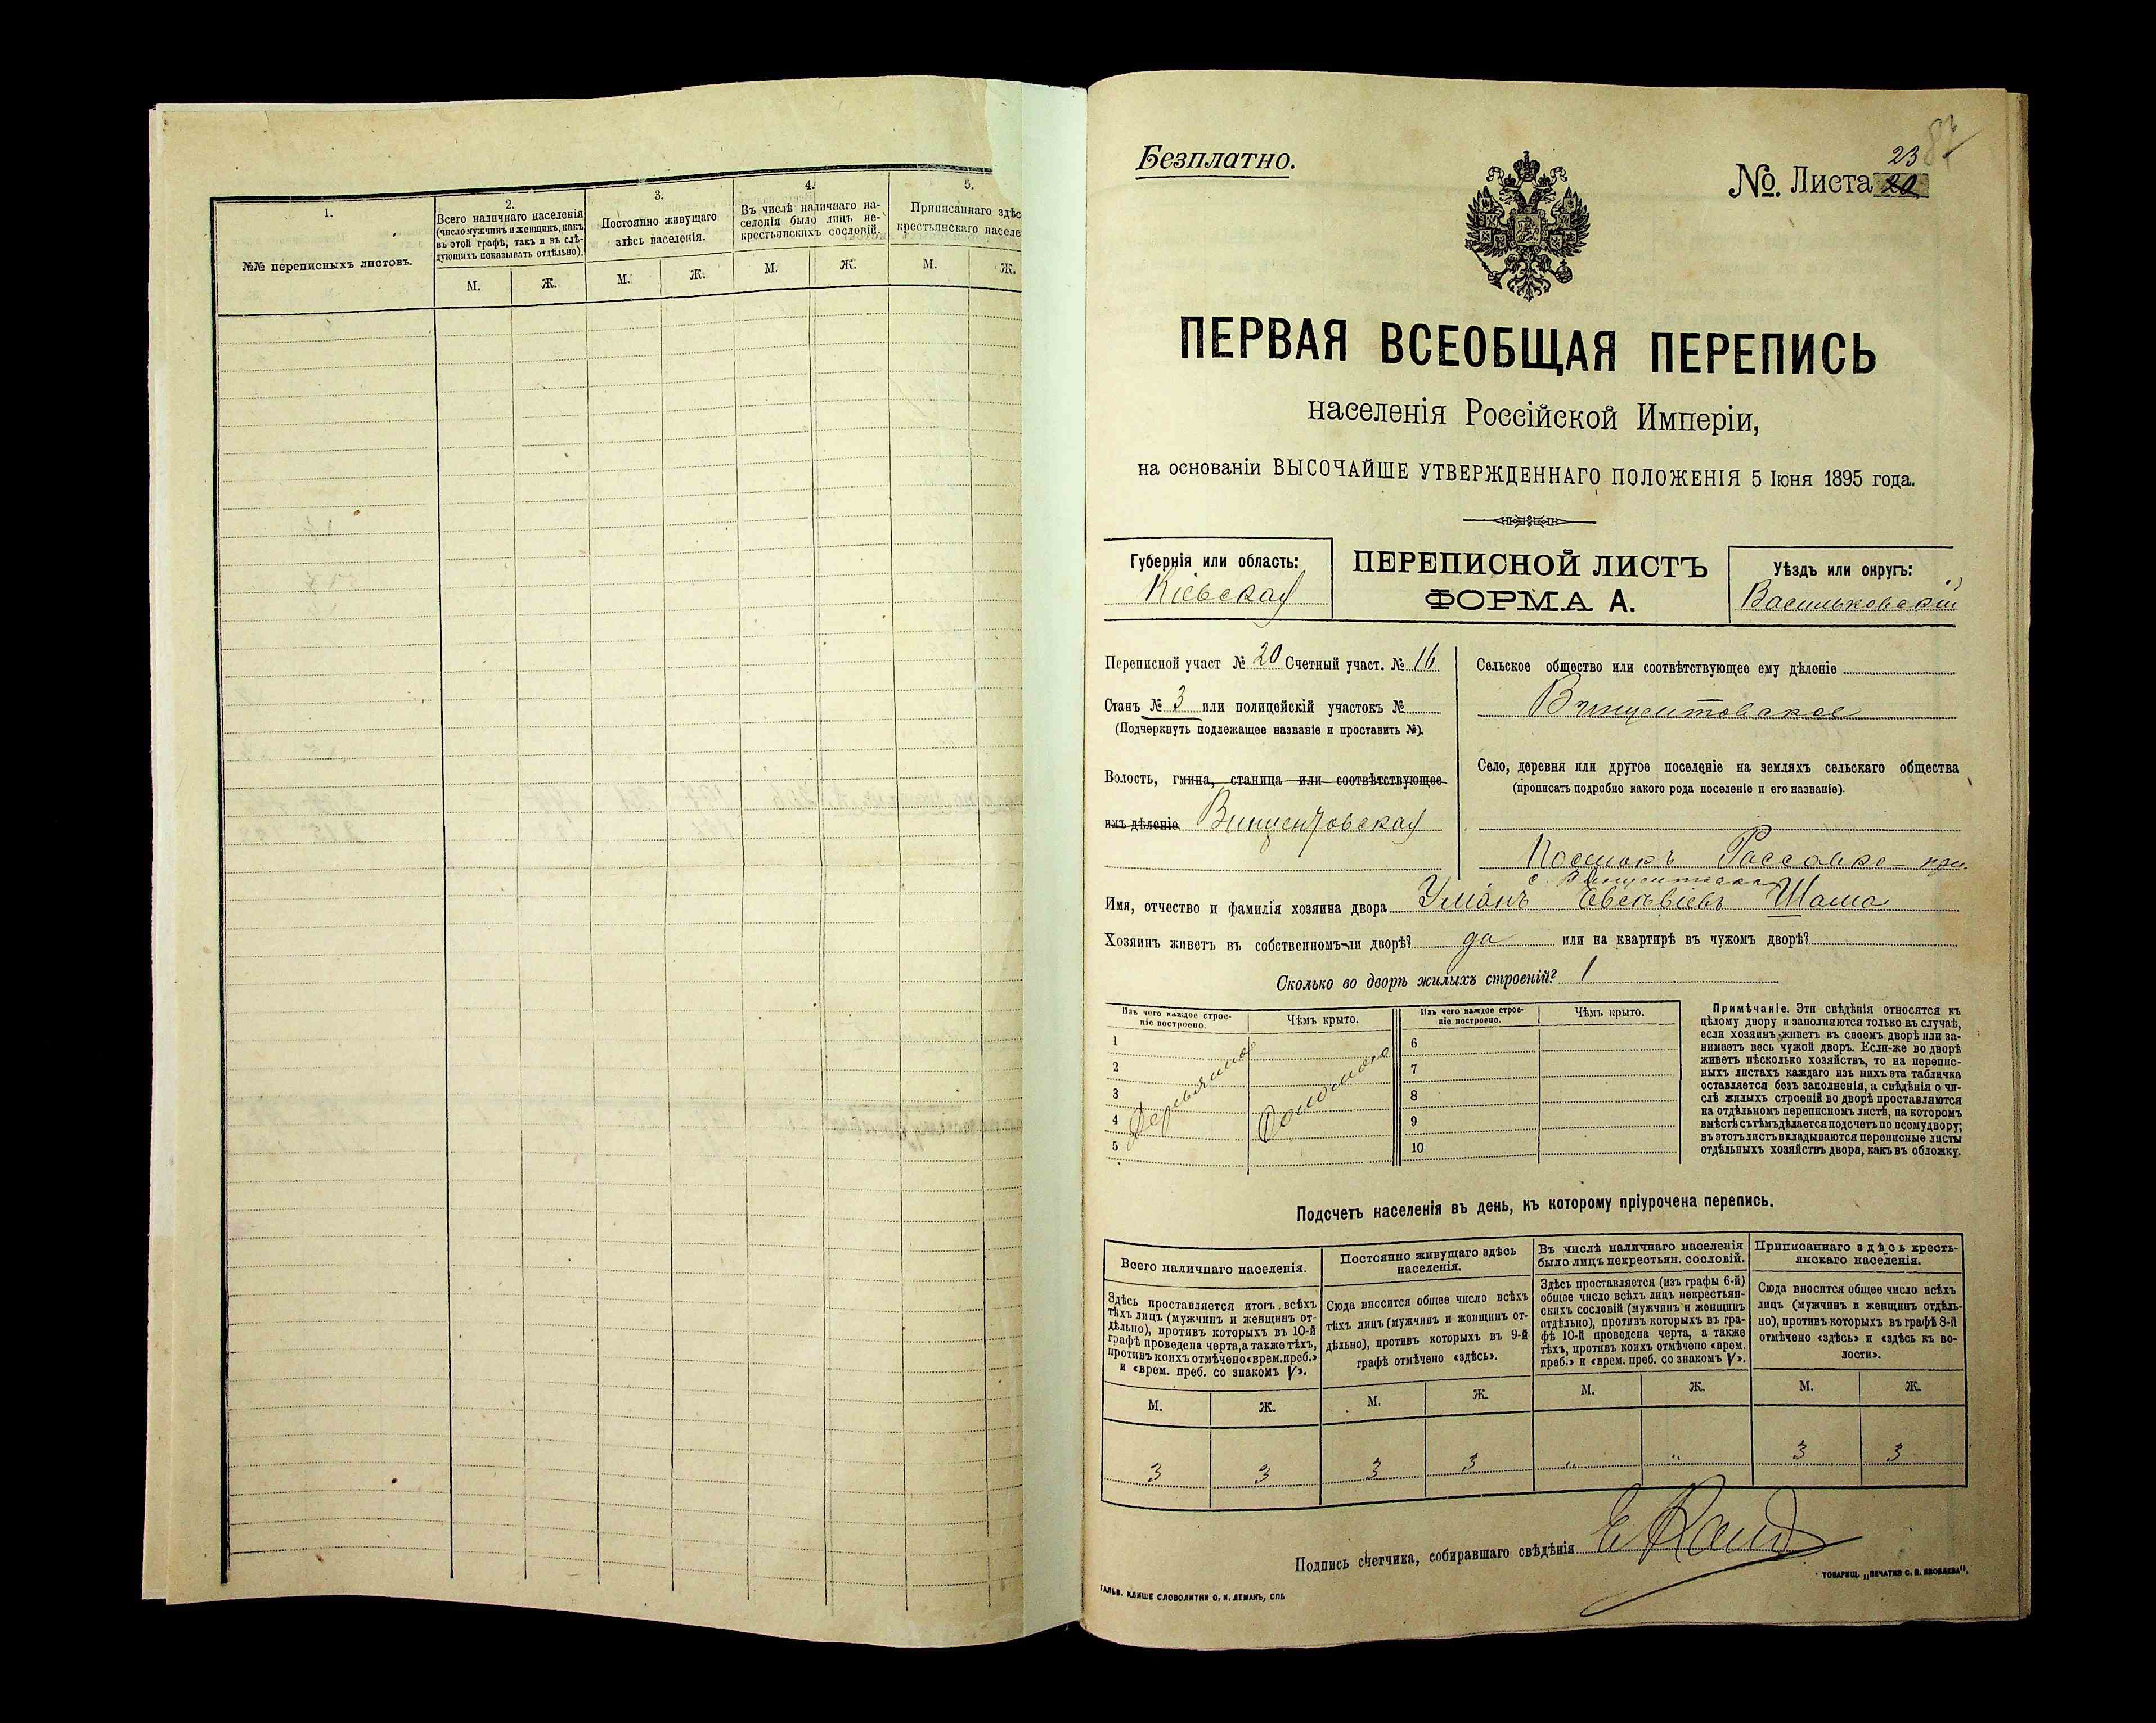 1.
2.
3.
4.
5.
№№ переписныхъ листовъ.
Всего наличнаго населенія
(число мужчинъ и женщинъ, какъ
въ этой графѣ, такъ и въ слѣ-
дующихъ показывать отдѣльно).
Постоянно живущаго
здѣсь населенія.
Въ числѣ наличнаго на-
селенія было лицъ не-
крестьянскихъ сословій.
Приписаннаго здѣс
крестьянскаго населе
М. Ж. М. Ж. М. Ж. М. Ж.
Безплатно.
23
№. Листа 20
ПЕРВАЯ ВСЕОБЩАЯ ПЕРЕПИСЬ
населенія Россійской Имперіи,
на основаніи ВЫСОЧАЙШЕ УТВЕРЖДЕННАГО ПОЛОЖЕНІЯ 5 Іюня 1895 года.
Губернія или область:
Кіевская
ПЕРЕПИСНОЙ ЛИСТЪ
ФОРМА А.
Уѣздъ или округъ:
Васильковскій
Переписной участ № 20 Счетный участ. № 16
Станъ № 3 или полицейскій участокъ №
(Подчеркнуть подлежащее названіе и проставить №).
Волость, гмина, станица или соотвѣтствующее
имъ дѣленіе Винцентовская
Сельское общество или соотвѣтствующее ему дѣленіе
Винцентовское
Село, деревня или другое поселеніе на земляхъ сельскаго общества
(прописать подробно какого рода поселеніе и его названіе).
Поселокъ при
с.
Имя, отчество и фамилія хозяина двора Шама
Хозяинъ живетъ въ собственномъ-ли дворѣ? да или на квартирѣ въ чужомъ дворѣ?
Сколько во дворѣ жилыхъ строеній? 1
Изъ чего каждое строе-
ніе построено.
Чѣмъ крыто.
Изъ чего каждое строе-
ніе построено.
Чѣмъ крыто.
1
2
3
4
5
Деревянное
Соломою
6
7
8
9
10
Примѣчаніе. Эти свѣдѣнія относятся къ
цѣлому двору и заполняются только въ случаѣ,
если хозяинъ живетъ въ своемъ дворѣ или за-
нимаетъ весь чужой дворъ. Если-же во дворѣ
живетъ нѣсколько хозяйствъ, то на перепис-
ныхъ листахъ каждаго изъ нихъ эта табличка
оставляется безъ заполненія, а свѣдѣнія о чи-
слѣ жилыхъ строеній во дворѣ проставляются
на отдѣльномъ переписномъ листѣ, на которомъ
вмѣстѣ съ тѣмъ дѣлается подсчетъ по всему двору;
въ этотъ листъ вкладываются переписные листы
отдѣльныхъ хозяйствъ двора, какъ въ обложку.
Подсчетъ населенія въ день, къ которому пріурочена перепись.
Всего наличнаго населенія.
Здѣсь проставляется итогъ всѣхъ
тѣхъ лицъ (мужчинъ и женщинъ от-
дѣльно), противъ которыхъ въ 10-й
графѣ проведена черта, а также тѣхъ,
противъ коихъ отмѣчено «врем. преб.»
и «врем. преб. со знакомъ V».
Постоянно живущаго здѣсь
населенія.
Сюда вносится общее число всѣхъ
тѣхъ лицъ (мужчинъ и женщинъ от-
дѣльно), противъ которыхъ въ 9-й
графѣ отмѣчено «здѣсь».
Въ числѣ наличнаго населенія
было лицъ некрестьян. сословій.
Здѣсь проставляется (изъ графы 6-й)
общее число всѣхъ лицъ некрестьян-
скихъ сословій (мужчинъ и женщинъ
отдѣльно), противъ которыхъ въ гра-
фѣ 10-й проведена черта, а также
тѣхъ, противъ коихъ отмѣчено «врем.
преб.» и «врем. преб. со знакомъ V».
Приписаннаго здѣсь кресть-
янскаго населенія.
Сюда вносится общее число всѣхъ
лицъ (мужчинъ и женщинъ отдѣль-
но), противъ которыхъ въ графѣ 8-й
отмѣчено «здѣсь» и «здѣсь къ во-
лости».
М. Ж. М. Ж. М. Ж. М. Ж.
3 3 3 3 " " 3 3
Подпись счетчика, собиравшаго свѣдѣнія
ГАЛЬВ. КЛИШЕ СЛОВОЛИТНИ О. И. ЛЕМАНЪ, СПБ
ТОВАРИЩ. „ПЕЧАТНЯ С. П. ЯКОВЛЕВА",